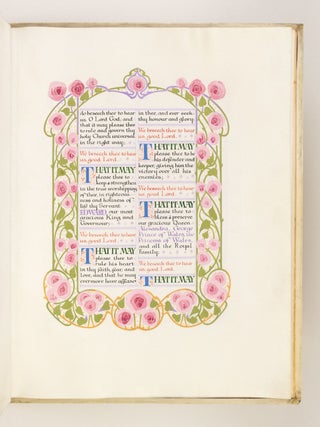 do beseech thee to hear
us, O Lord God; and
that it may please thee
to rule and govern thy
holy Church universal
in the right way;
We beseech thee to hear
us good Lord.
THAT IT MAY
please thee to
keep & strengthen
in the true worshipping
of thee, in righteous-
ness and holiness of
life thy Servant
EDWARD our most
gracious King and
Governour;
We beseech thee to hear
us good Lord.
THAT IT MAY
please thee to
rule his heart
in thy faith, fear, and
love, and that he may
evermore have affiance
in thee, and ever seek
thy honour and glory;
We beseech thee to hear
us good Lord.
THAT IT MAY
please thee to be
his defender and
keeper, giving him the
victory over all his
enemies;
We beseech thee to hear
us good Lord.
THAT IT MAY
please thee to
bless & preserve
our gracious Queen
Alexandra, George
Prince of Wales, the
Princess of Wales,
and all the Royal
Family;
We beseech thee to hear
us good Lord.
THAT IT MAY